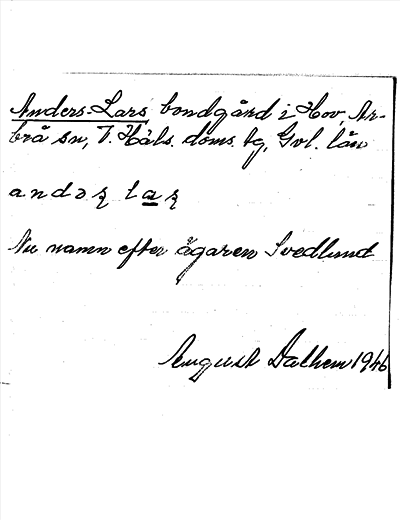 Anders-Lars, bondgård i Hov, Ar-
brå sn, V. Häls. doms. tg, Gvl. län
andəʂ laʂ
Nu namn efter ägaren Svedlund
August Dalhem 1946